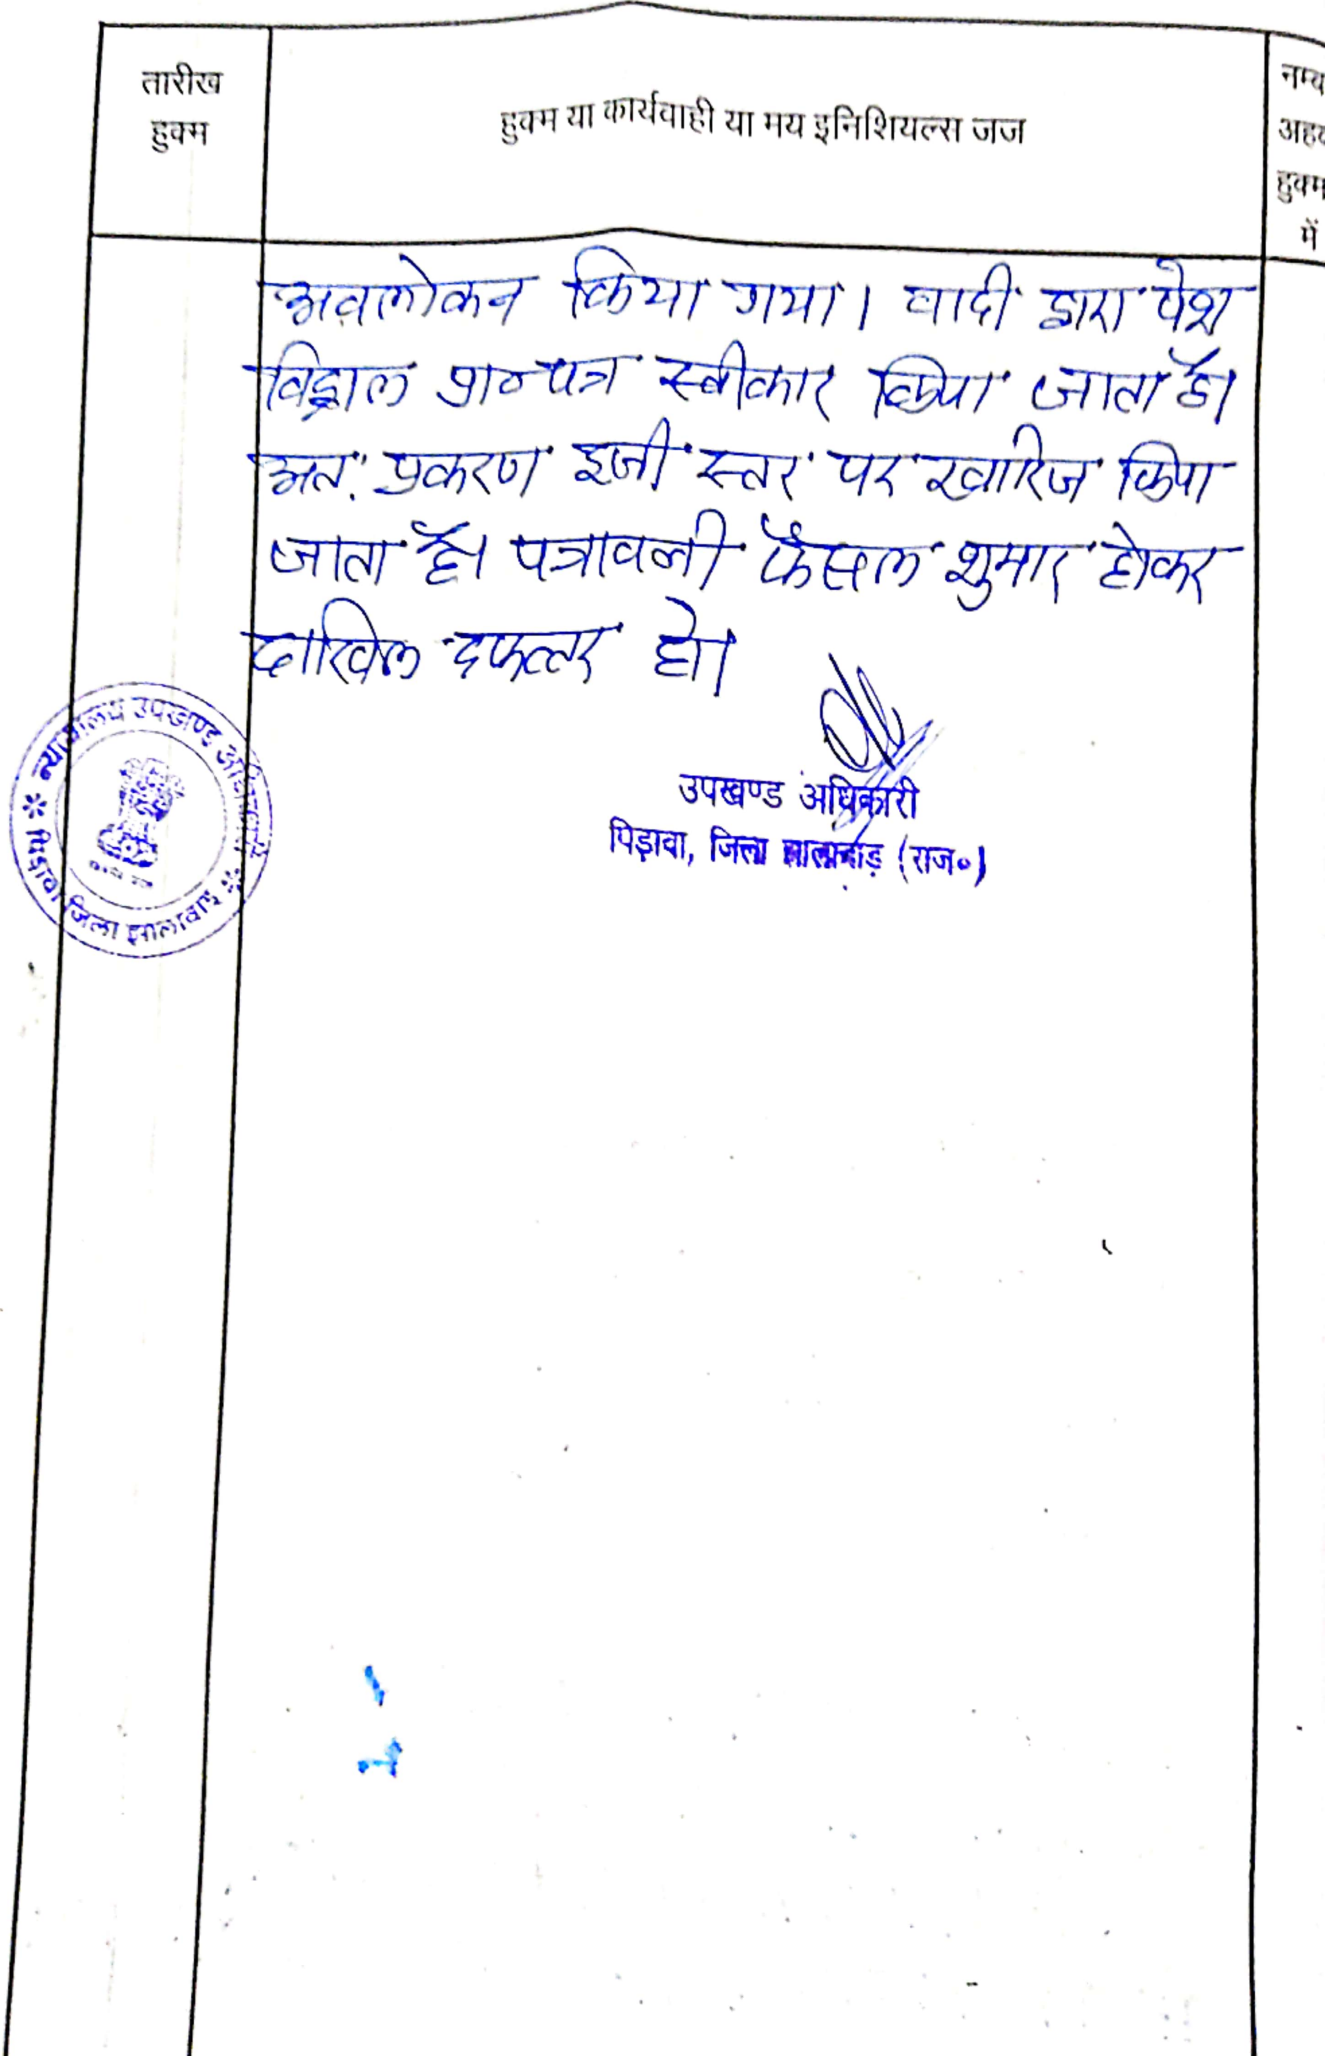 तारीख
हुक्म
हुक्म या कार्यवाही या मय इनिशियल्स जज
नम्ब
अहद
हुक्म
में
अवलोकन किया गया। वादी द्वारा पेश
विड्राल प्रा०पत्र स्वीकार किया जाता है।
अतः प्रकरण इजी स्तर पर खारिज किया
जाता है। पत्रावली फैसल शुमार होकर
दाखिल दफ्तर हो।
उपखण्ड अधिकारी
पिड़ावा, जिला झालावाड़ (राज०)
न्यायालय उपखण्ड अधिकारी
पिड़ावा जिला झालावाड़